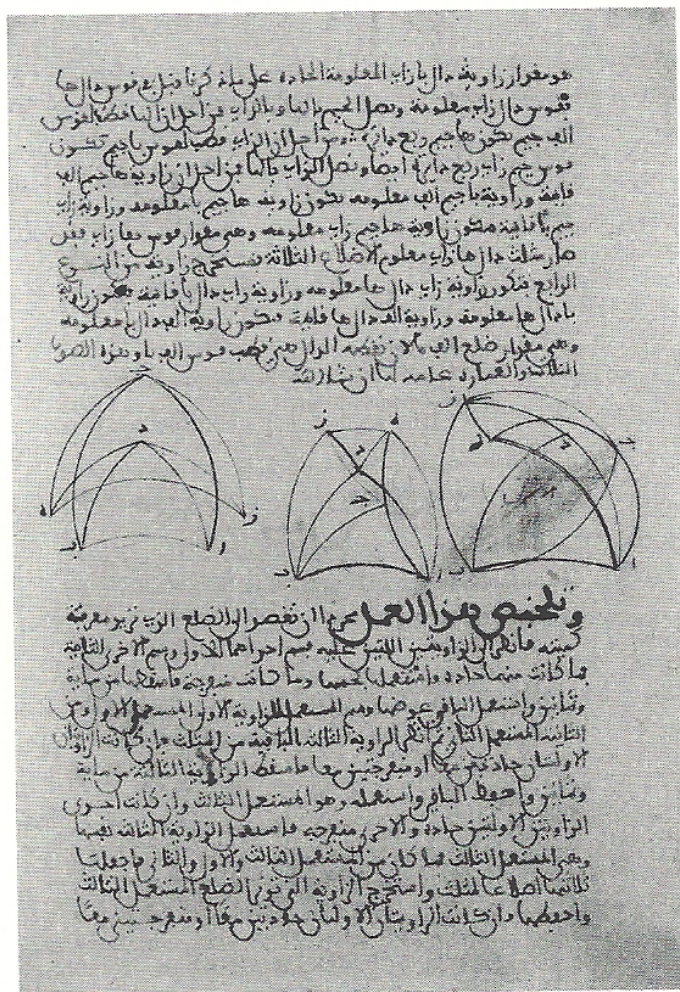 هو مقدار زاوية دال با زاب المعلومة الحادة على ما ذكرنا قبل في قوس دال ها
فقوس دال زاب معلومة ونصل الجيم بالها وبالزاب فمن اجل ان الها قطب لقوس
الف جيم تكون ها جيم ربع دائرة ومن اجل ان الزاب قطب لقوس با جيم تكون
قوس جيم زاب ربع دائرة ايضا ونصل الزاب بالها فمن اجل ان زاوية ها جيم الف
قائمة وزاوية با جيم الف معلومة تكون زاوية ها جيم با معلومة وزاوية زاب
جيم با قائمة فتكون زاوية ها جيم زاب معلومة وهي مقدار قوس ها زاب فقد
صار مثلث دال ها زاب معلوم الاضلاع الثلاثة فنستخرج زاوية من النوع
الرابع فتكون زاوية زاب دال ها معلومة وزاوية زاب دال با قائمة فتكون زاوية
با دال ها معلومة وزاوية الف دال ها قائمة فتكون زاوية الف دال با معلومة
وهي مقدار ضلع الف با لان نقطة الدال هي قطب قوس الف با وهذه الصور
الثلاثة والعبارة عامة ان شا الله
وتلخيص هذا العمل ان تقصد الى الضلع الذي تريد معرفة
كميته فانظر الى الزاويتين اللتين عليه فسم احداهما الاولى وسم الاخرى الثانية
فما كانت منهما حادة فاستعمل وما كانت منفرجة فاسقطها من ماية
وثمانين واستعمل الباقي عوضها وسم المستعمل للزاوية الاولى المستعمل الاول ومن
الثانية المستعمل الثاني ثم انظر الزاوية الثالثة الباقية من المثلث فان كانت الزاويتان
الاوليتان حادتين معا او منفرجتين معا فاسقط الزاوية الثالثة من ماية
وثمانين واحفظ الباقي واستعمله وهو المستعمل الثالث وان كانت احدى
الزاويتين الاوليتين حادة والاخرى منفرجة فاستعمل الزاوية الثالثة نفسها
وهي المستعمل الثالث فما كان من المستعمل الثالث والاول والثاني فاجعلها
ثلاثتها اضلاعا لمثلث واستخرج الزاوية التي يوترها الضلع المستعمل الثالث
واحفظها وان كانت الزاويتان الاوليتان حادتين معا او منفرجتين معا